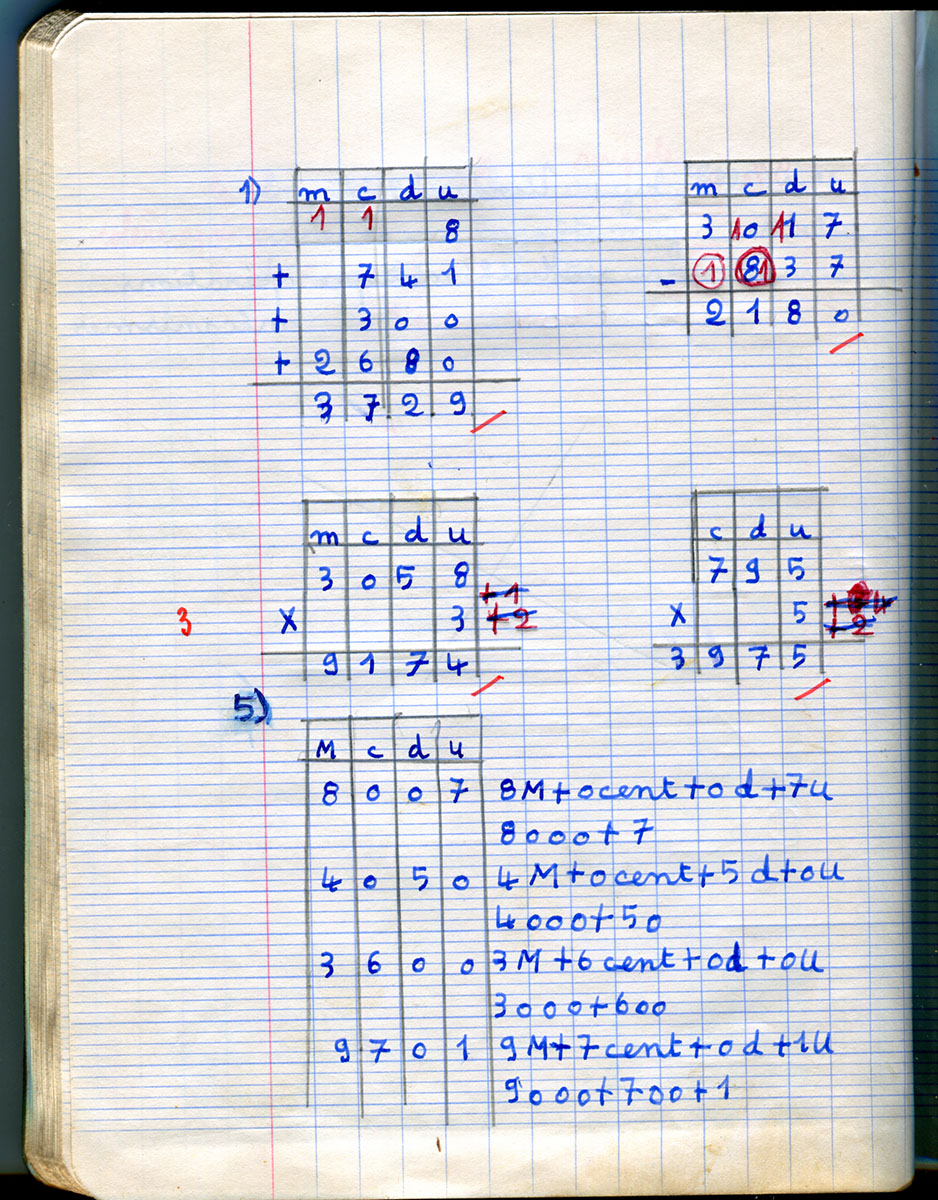 1)
m c d u
1 1 8
+ 7 4 1
+ 3 0 0
+ 2 6 8 0
3 7 2 9
m c d u
3 10 11 7
- 1 81 3 7
2 1 8 0
m c d u
3 0 5 8 +1
3 X 3 +2
9 1 7 4
c d u
7 9 5
X 5 +4
+2
3 9 7 5
5)
M c d u
8 0 0 7 8M+0cent+0d+7u
8000+7
4 0 5 0 4M+0cent+5d+0u
4000+50
3 6 0 0 3M+6cent+0d+0u
3000+600
9 7 0 1 9M+7cent+0d+1u
9000+700+1